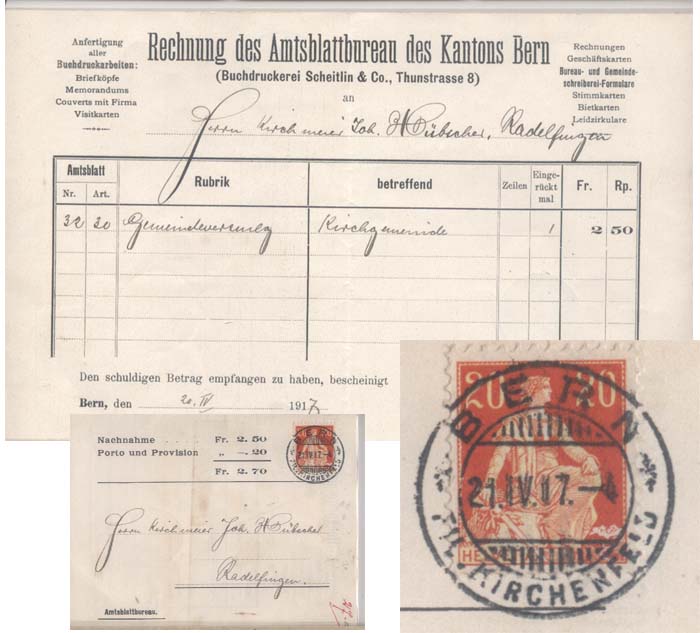 Anfertigung
aller
Buchdruckarbeiten:
Briefköpfe
Memorandums
Couverts mit Firma
Visitkarten
Rechnung des Amtsblattbureau des Kantons Bern
(Buchdruckerei Scheitlin & Co., Thunstrasse 8)
an
Rechnungen
Geschäftskarten
Bureau- und Gemeinde-
schreiberei-Formulare
Stimmkarten
Bietkarten
Leidzirkulare
Herrn Kirchmeier Joh. Hübscher, Radelfingen
Amtsblatt
Nr. Art. Rubrik betreffend Zeilen Einge-
rückt
mal Fr. Rp.
32 20 Gemeindeversmlg Kirchgemeinde 1 2 50
Den schuldigen Betrag empfangen zu haben, bescheinigt
Bern, den 20. IV 1917
Nachnahme . . . Fr. 2. 50
Porto und Provision „ —. 20
Fr. 2. 70
BERN
21.IV.17.-4
FIL. KIRCHENFELD
Herrn Kirchmeier Joh. Hübscher
Radelfingen.
Amtsblattbureau.
20 20
BERN
21.IV.17.-4
HE
FIL. KIRCHENFELD